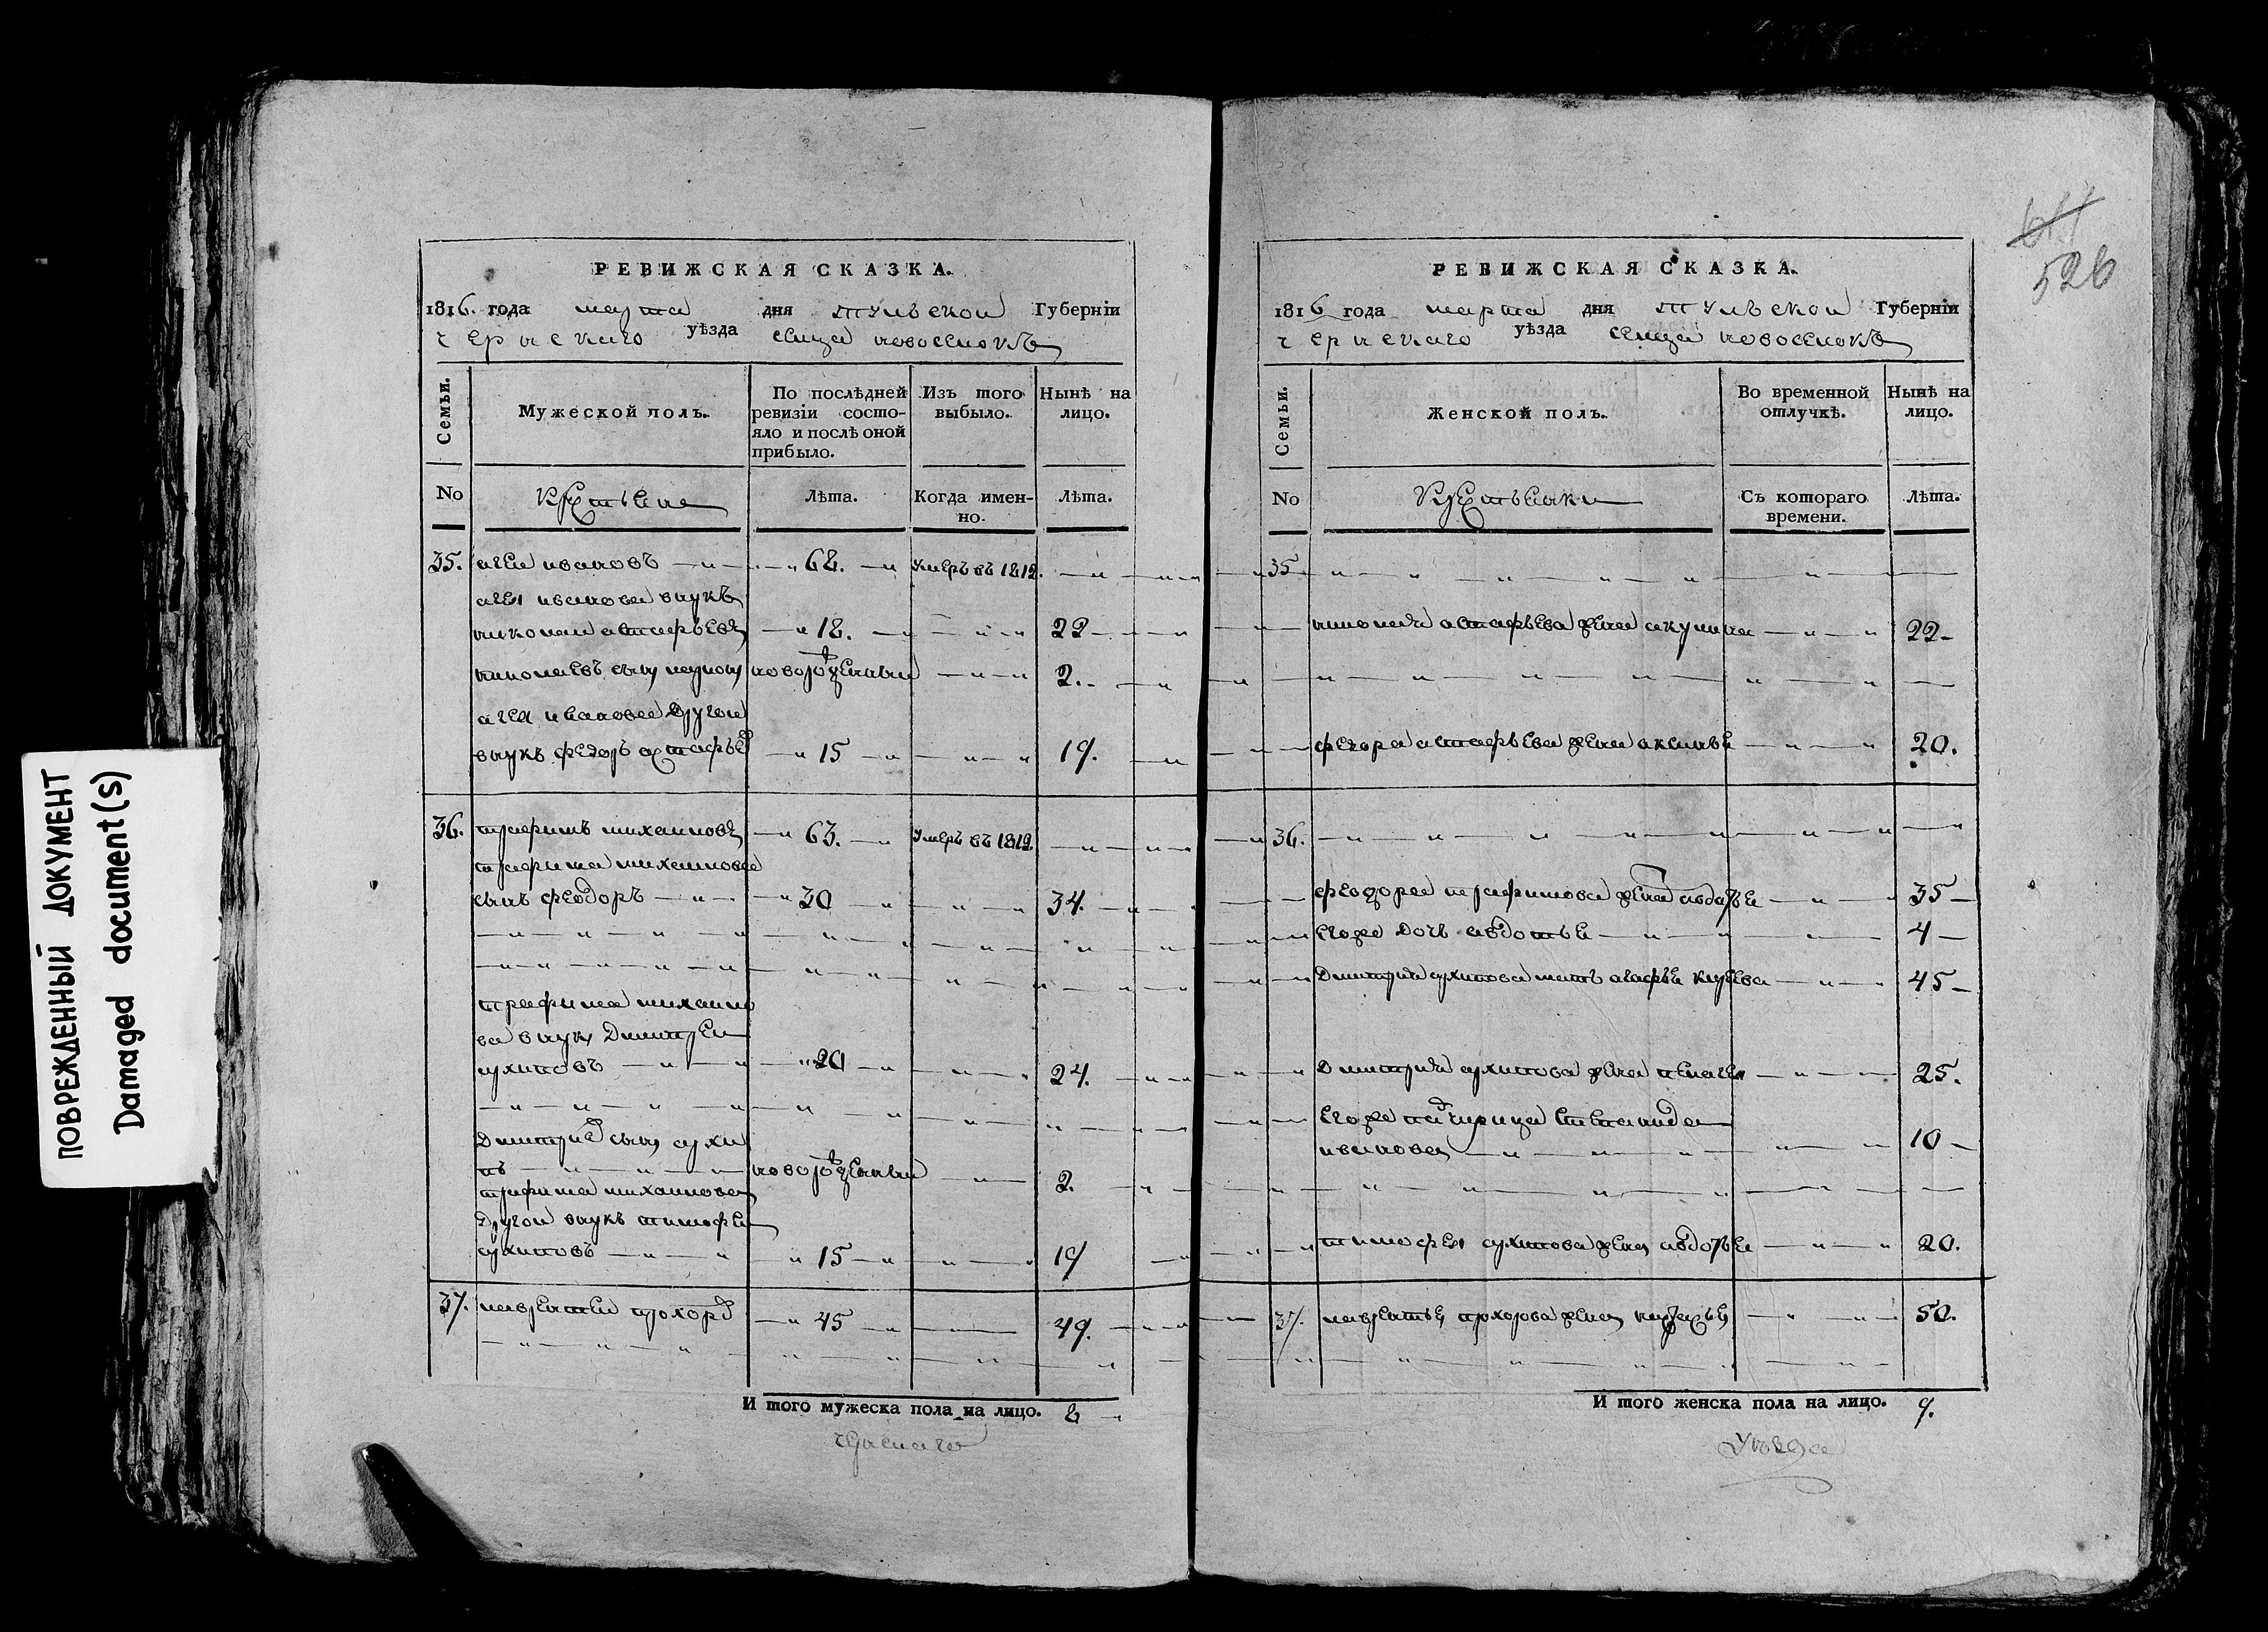 ПОВРЕЖДЕННЫЙ ДОКУМЕНТ
Damaged document(s)
РЕВИЖСКАЯ СКАЗКА.
1816. года марта дня тульской Губерніи
чернскаго уѣзда селца новоселокъ
Семьи.
Мужеской полъ.
По послѣдней ревизіи состояло и послѣ оной прибыло.
Изъ того выбыло.
Нынѣ на лицо.
No
Крестьяне
Лѣта.
Когда именно.
Лѣта.
35. агей ивановъ 68. умеръ въ 1812.
агея иванова внукъ
николай астафьевъ 18. 22
николаевъ сынъ новорожденный 2.
агея иванова другой
внукъ федоръ астафьевъ 15 19.
36. трафимъ михайловъ 63. умеръ въ 1812.
трафима михайлова
сынъ феодоръ 30 34.
трафима михайло
ва внукъ дмитрей
архиповъ 20 24.
дмитрия сынъ архи
пъ новорожденный 2.
трафима михайлова
другой внукъ тимофей
архиповъ 15 19
37. лаврентей прохоровъ 45 49.
И того мужеска пола на лицо. 8
чернскаго
611
526
РЕВИЖСКАЯ СКАЗКА.
1816 года марта дня тульской Губерніи
чернскаго уѣзда селца новоселокъ
Семьи.
Женской полъ.
Во временной отлучкѣ.
Нынѣ на лицо.
No
Крестьянки
Съ котораго времени.
Лѣта.
35
николая астафьева жена акулина 22
федора астафьева жена аксинья 20.
36.
феодора трафимова жена авдотья 35
егоже дочь авдотья 4
дмитрия архипова мать агафья 45
дмитрия архипова жена пелагея 25.
егоже падчерица степанида
иванова 10
тимофея архипова жена авдотья 20.
37. лаврентья прохорова жена 50.
И того женска пола на лицо. 9.
уѣзда